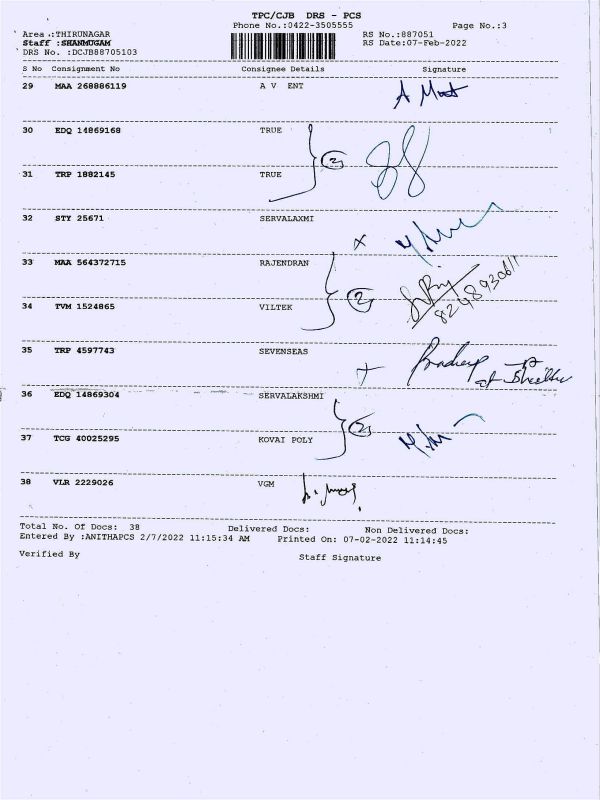 TPC/CJB DRS - PCS
Phone No.:0422-3505555 Page No.:3
Area .:THIRUNAGAR RS No.:887051
Staff :SHANMUGAM RS Date:07-Feb-2022
DRS No. :DCJB88705103
S No Consignment No Consignee Details Signature
29 MAA 268886119 A V ENT
30 EDQ 14869168 TRUE
2
31 TRP 1882145 TRUE
32 STY 25671 SERVALAXMI
33 MAA 564372715 RAJENDRAN
2
34 TVM 1524865 VILTEK
35 TRP 4597743 SEVENSEAS
Pradeep
36 EDQ 14869304 SERVALAKSHMI
2
37 TCG 40025295 KOVAI POLY
38 VLR 2229026 VGM
Total No. Of Docs: 38 Delivered Docs: Non Delivered Docs:
Entered By :ANITHAPCS 2/7/2022 11:15:34 AM Printed On: 07-02-2022 11:14:45
Verified By Staff Signature